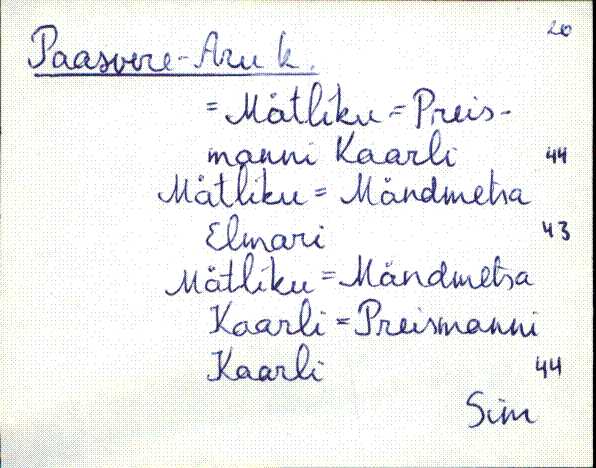 20
Paasvere-Aru k.
= Mätliku = Preis-
manni Kaarli 44
Mätliku = Mändmetsa
Elmari 43
Mätliku = Mändmetsa
Kaarli = Preismanni
Kaarli 44
Sim